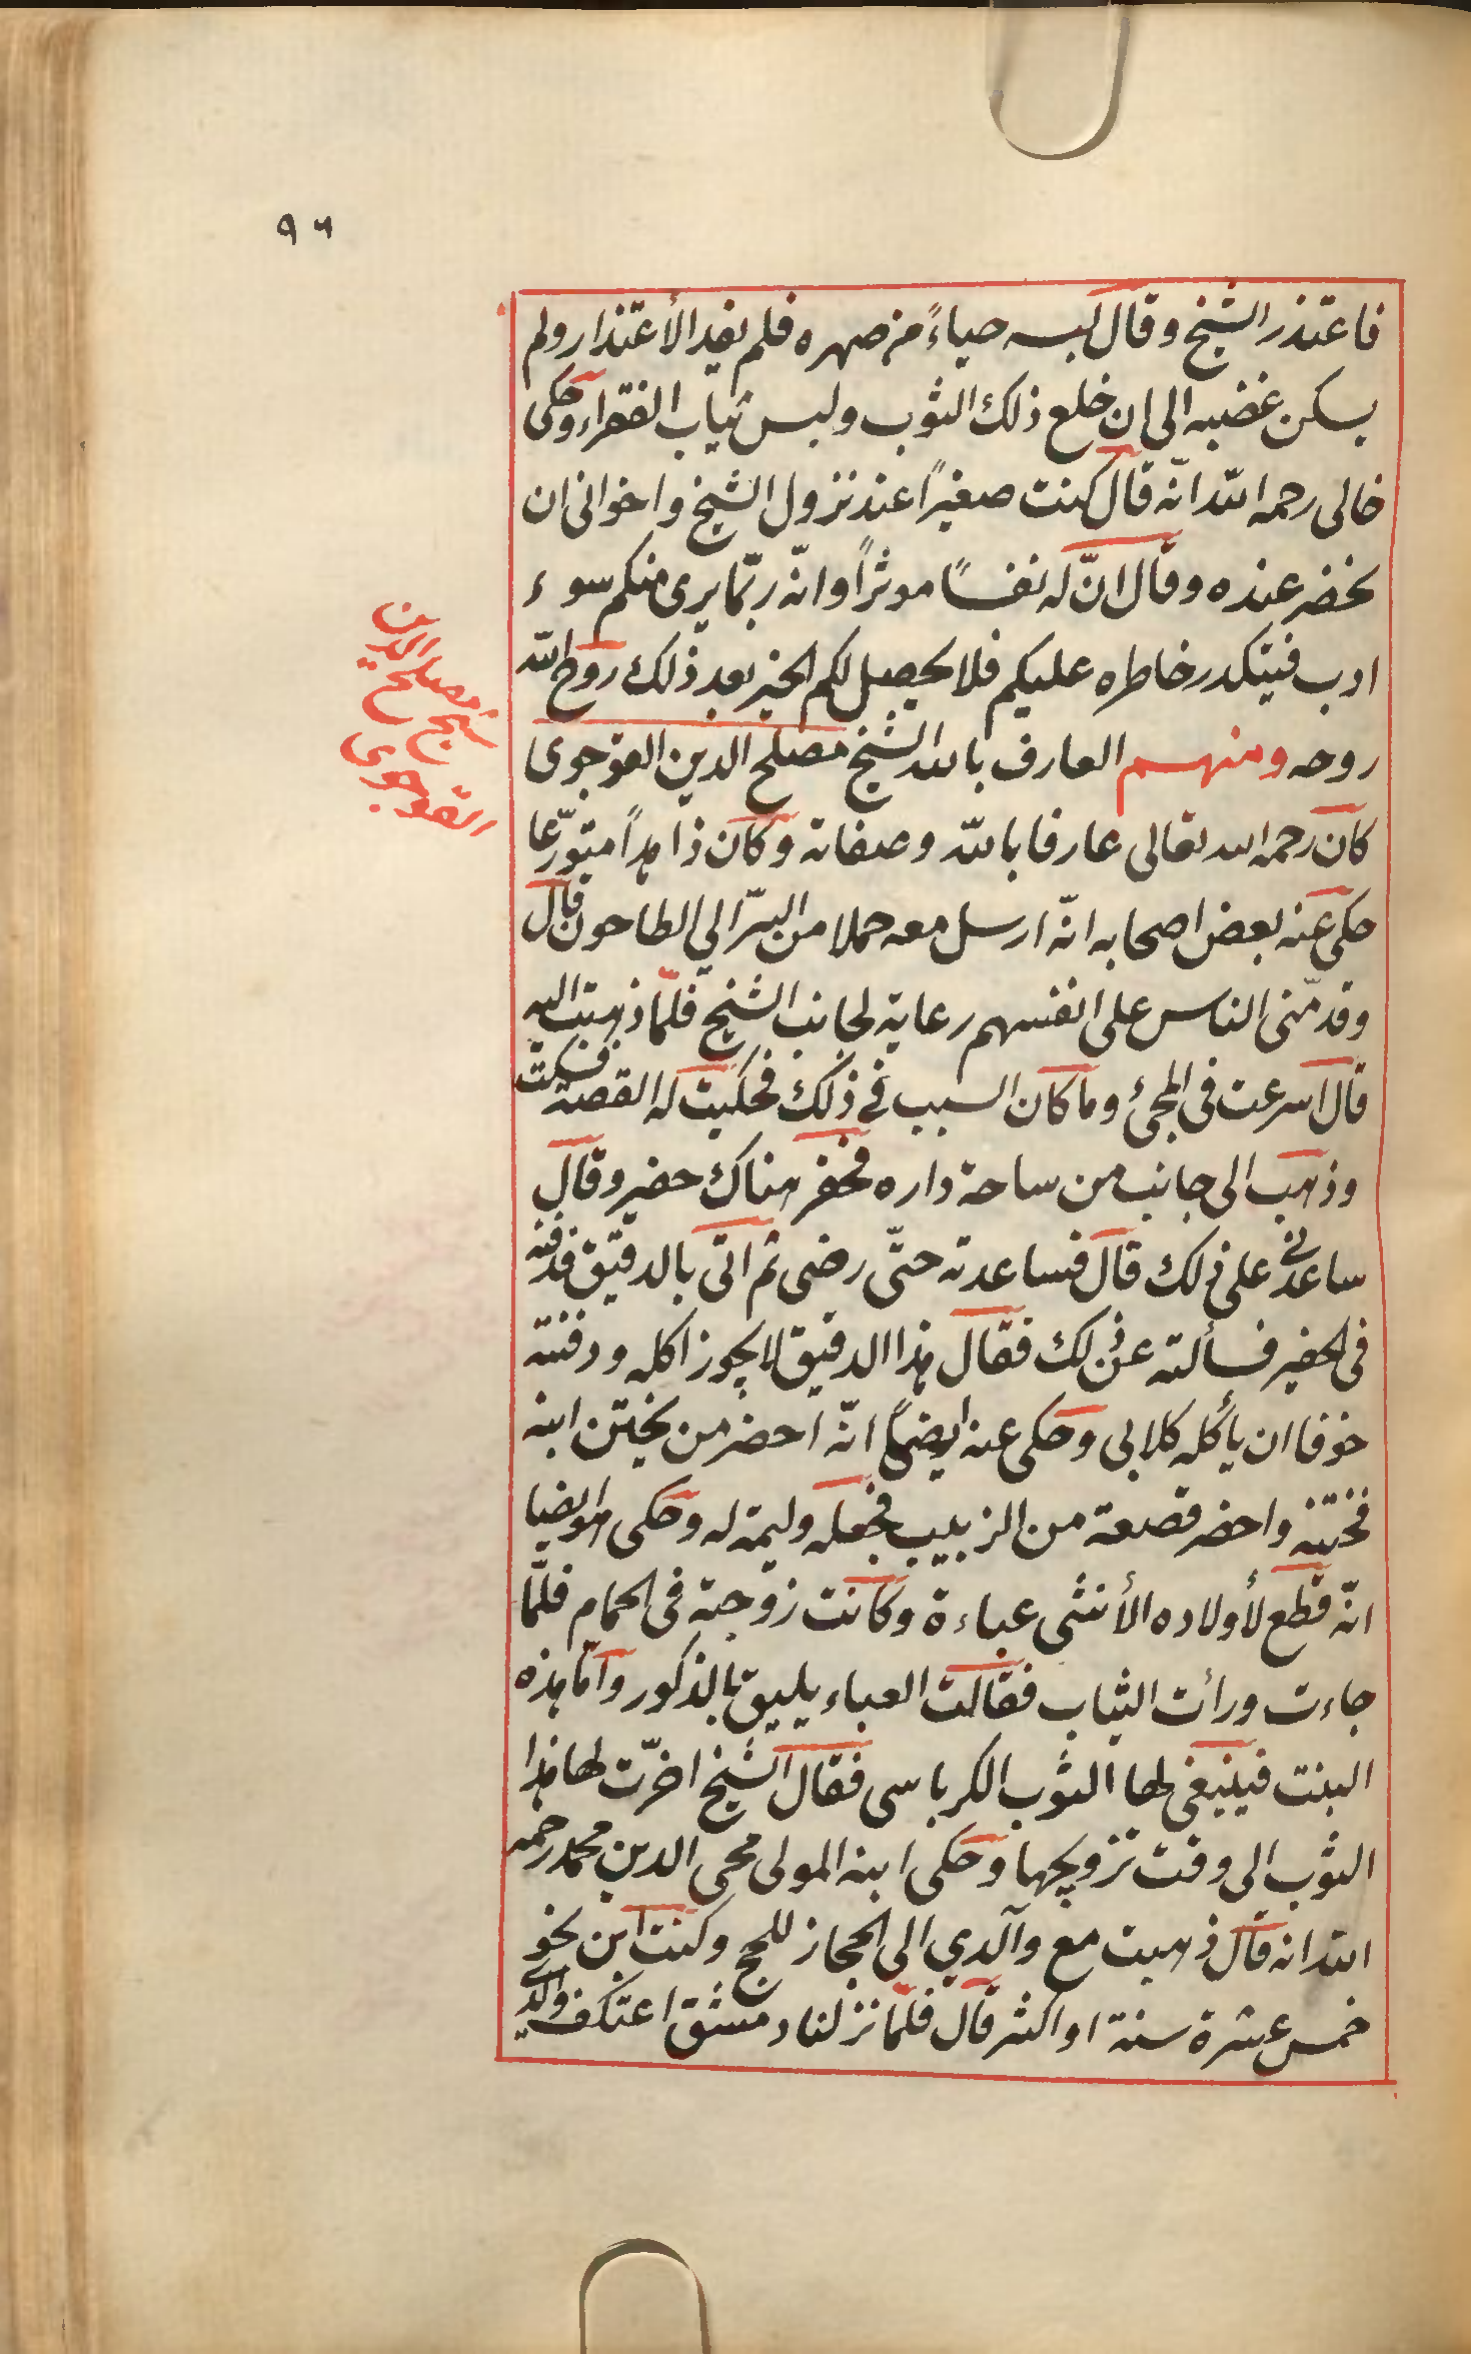 ٩٦
فاعتذر الشيخ وقال لبسه حياءً من صهره فلم يفد الأعتذار ولم
يسكن غضبه الى ان خلع ذلك الثوب ولبس ثياب الفقراء وحكى
خالى رحمه الله انّه قال كنت صغيرًا عند نزول الشيخ واخوانى ان
نحضر عنده وقال انّ له نفسًا موثرًا وانّه ربّما يرى منكم سوء
ادب فيتكدر خاطره عليكم فلا يحصل لكم الخير بعد ذلك روح الله
روحه ومنهم العارف بالله الشيخ مصلح الدين القوجوى
كان رحمه الله تعالى عارفا بالله وصفاته وكان زاهدًا متورّعا
حكى عنه بعض اصحابه انّه ارسل معه حملا من البرّ الي الطاحون قال
وقدّمنى الناس على انفسهم رعاية لجانب الشيخ فلمّا ذهبت اليه
قال اسرعت فى المجئ وما كان السبب في ذلك فحكيت له القصة فسكت
وذهب الى جانب من ساحة داره فحفر هناك حفير وقال
ساعدنى على ذلك قال فساعدته حتّى رضى ثم اتى بالدقيق فدفنه
فى الحفير فسألته عن ذلك فقال هذا الدقيق لا يجوز اكله ودفنته
خوفا ان يأكله كلابى وحكى عنه ايضًا انّه احضر من يختن ابنه
فختنه واحضر قصعة من الزبيب فجعله وليمة له وحكى هو ايضا
انّه قطع لأولاده الأنثى عباءة وكانت زوجته فى الحمام فلمّا
جاءت ورأت الثياب فقالت العباء يليق بالذكور وامّا هذه
البنت فينبغى لها الثوب الكرباسى فقال الشيخ اخرّت لها هذا
الثوب الى وقت تزويجها وحكى ابنه المولى محى الدين محمد رحمه
الله انه قال ذهبت مع والدي الى الحجاز للحج وكنت ابن نحو
خمس عشرة سنة او اكثر قال فلمّا نزلنا دمشق اعتكف والدي
شيخ مصلح الدين
القوجوى